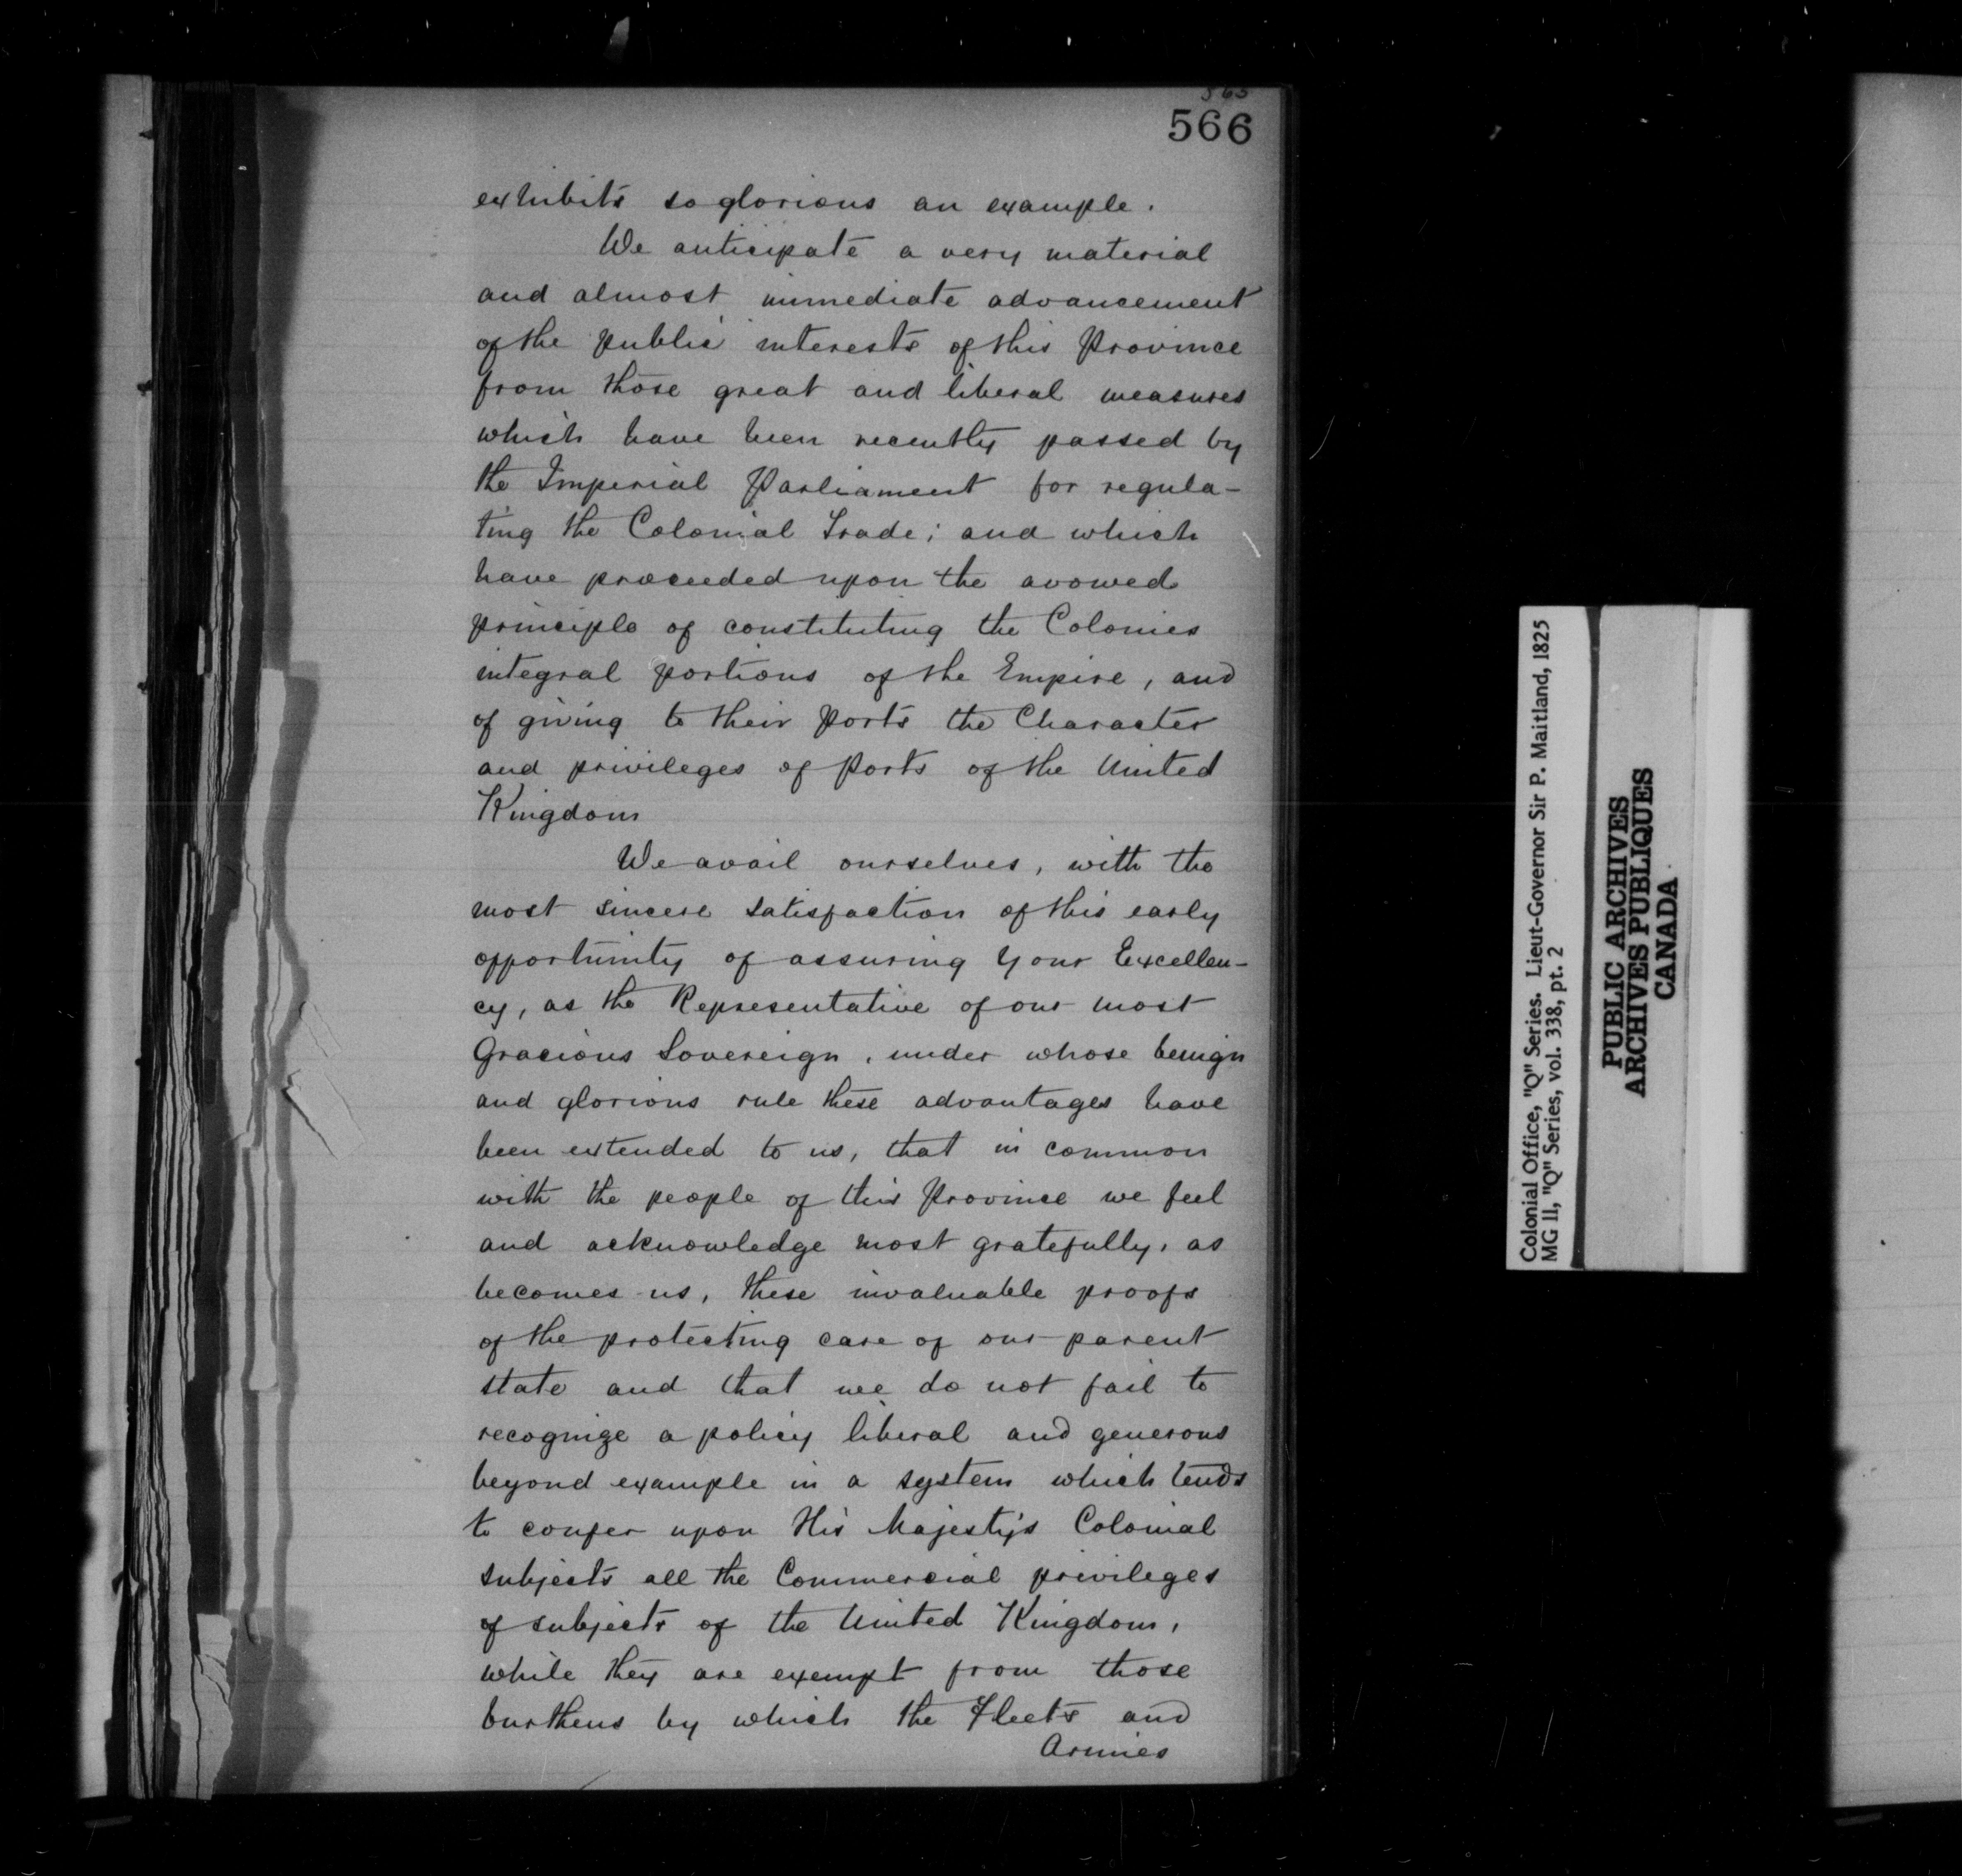 565
566
exhibits so glorious an example.
We anticipate a very material
and almost immediate advancement
of the public interests of this Province
from those great and liberal measures
which have been recently passed by
the Imperial Parliament for regula-
ting the Colonial Trade; and which
have proceeded upon the avowed
principle of constituting the Colonies
integral portions of the Empire, and
of giving to their Ports the Character
and privileges of Ports of the United
Kingdom
We avail ourselves, with the
most sincere satisfaction of this early
opportunity of assuring Your Excellen-
cy, as the Representative of our most
Gracious Sovereign, under whose benign
and glorious rule these advantages have
been extended to us, that in common
with the people of this Province we feel
and acknowledge most gratefully, as
becomes us, these invaluable proofs
of the protecting care of our parent
state and that we do not fail to
recognize a policy liberal and generous
beyond example in a system which tends
to confer upon His Majesty's Colonial
subjects all the Commercial privileges
of subjects of the United Kingdom,
while they are exempt from those
burthens by which the Fleets and
Armies
Colonial Office, "Q" Series. Lieut-Governor Sir P. Maitland, 1825
MG 11, "Q" Series, vol. 338, pt. 2
PUBLIC ARCHIVES
ARCHIVES PUBLIQUES
CANADA